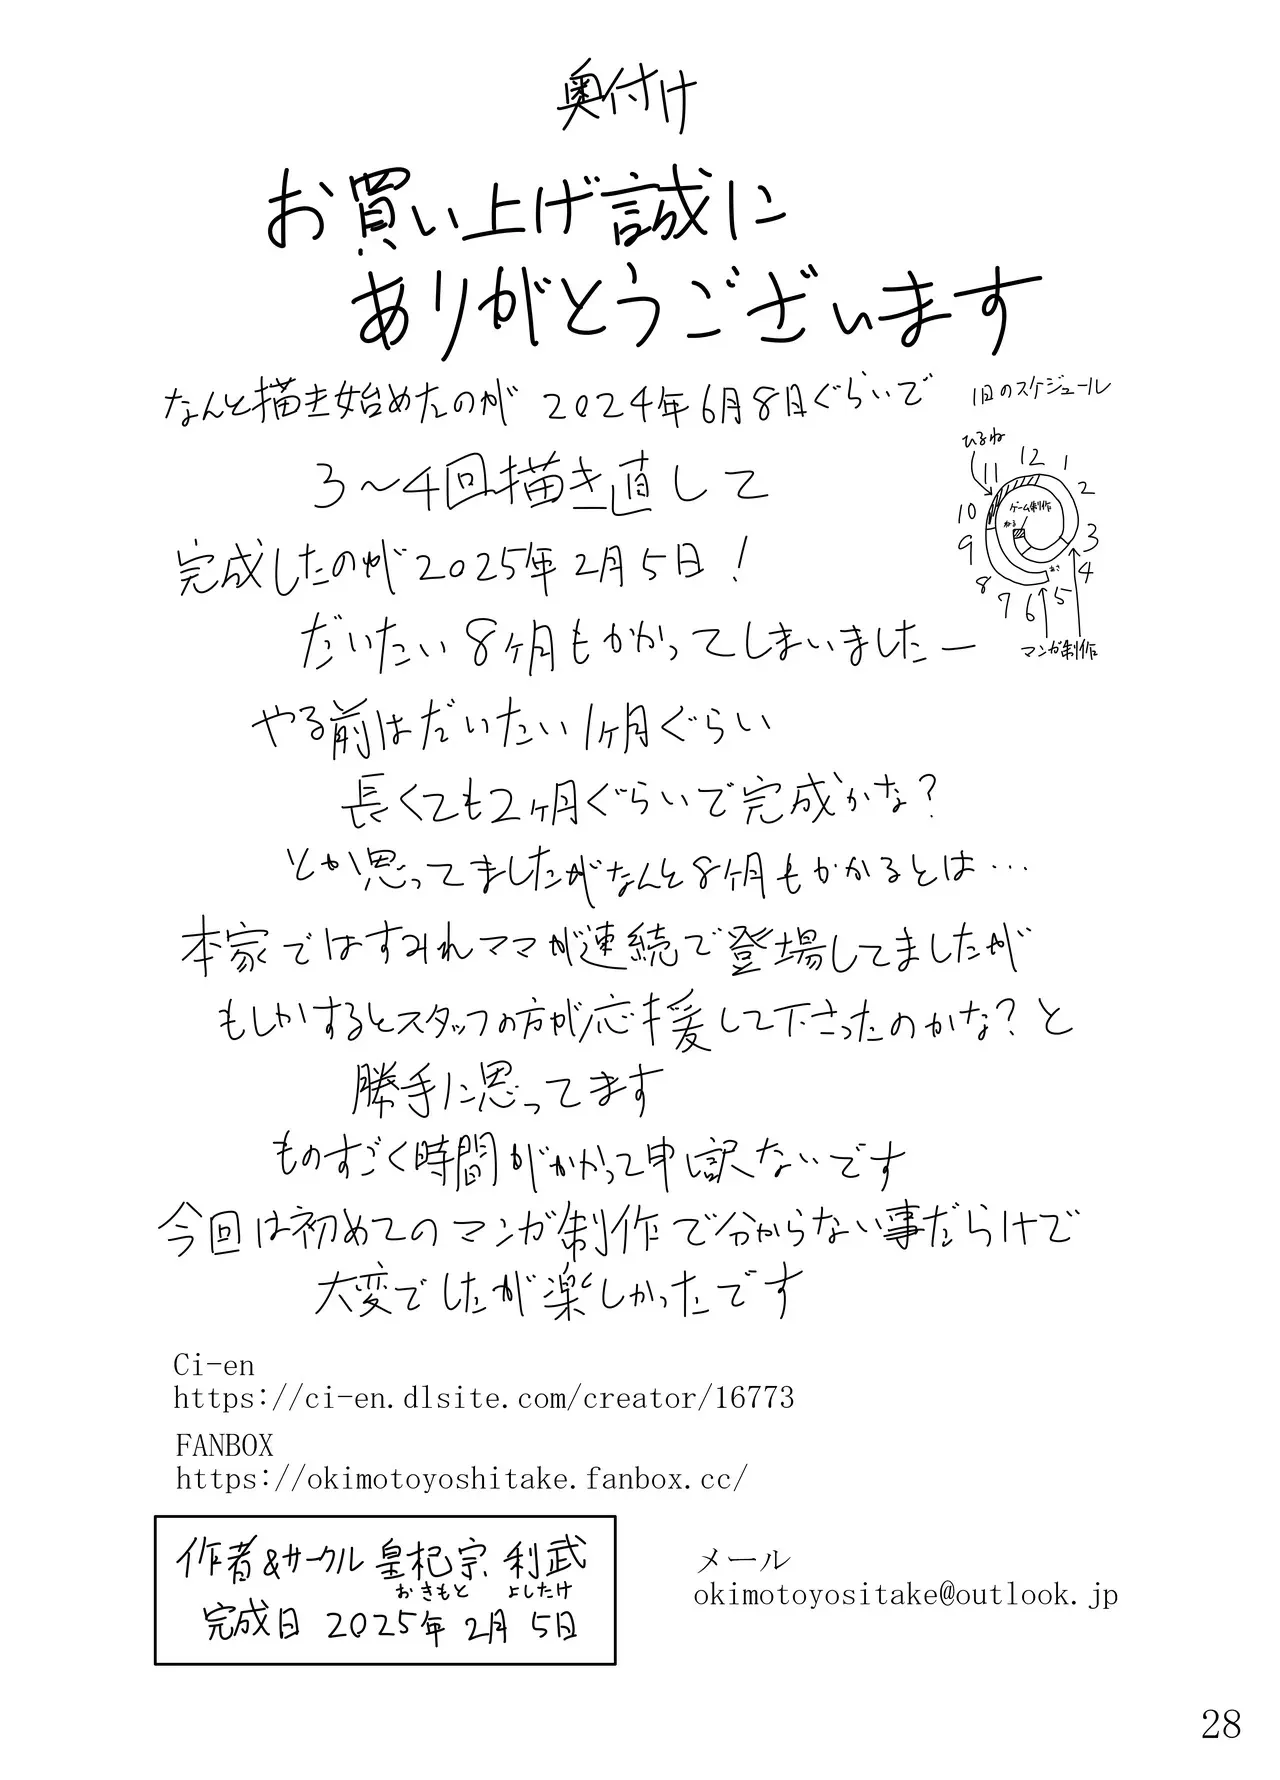 奥付け
お買い上げ誠に
ありがとうございます
なんと描き始めたのが 2024年6月8日ぐらいで
3〜4回描き直して
完成したのが2025年2月5日!
だいたい8ヶ月もかかってしまいましたー
1日のスケジュール
ひるね
12
1
2
3
4
5
6
7
8
9
10
11
ゲーム制作
ねる
あさ
マンガ制作
やる前はだいたい1ヶ月ぐらい
長くても2ヶ月ぐらいで完成かな?
とか思ってましたがなんと8ヶ月もかかるとは…
本家ではすみれママが連続で登場してましたが
もしかするとスタッフの方が応援して下さったのかな?と
勝手に思ってます
ものすごく時間がかかって申し訳ないです
今回は初めてのマンガ制作で分からない事だらけで
大変でしたが楽しかったです
Ci-en
https://ci-en.dlsite.com/creator/16773
FANBOX
https://okimotoyoshitake.fanbox.cc/
作者&サークル 皇杞宗 利武
おきもと よしたけ
完成日 2025年2月5日
メール
okimotoyositake@outlook.jp
28